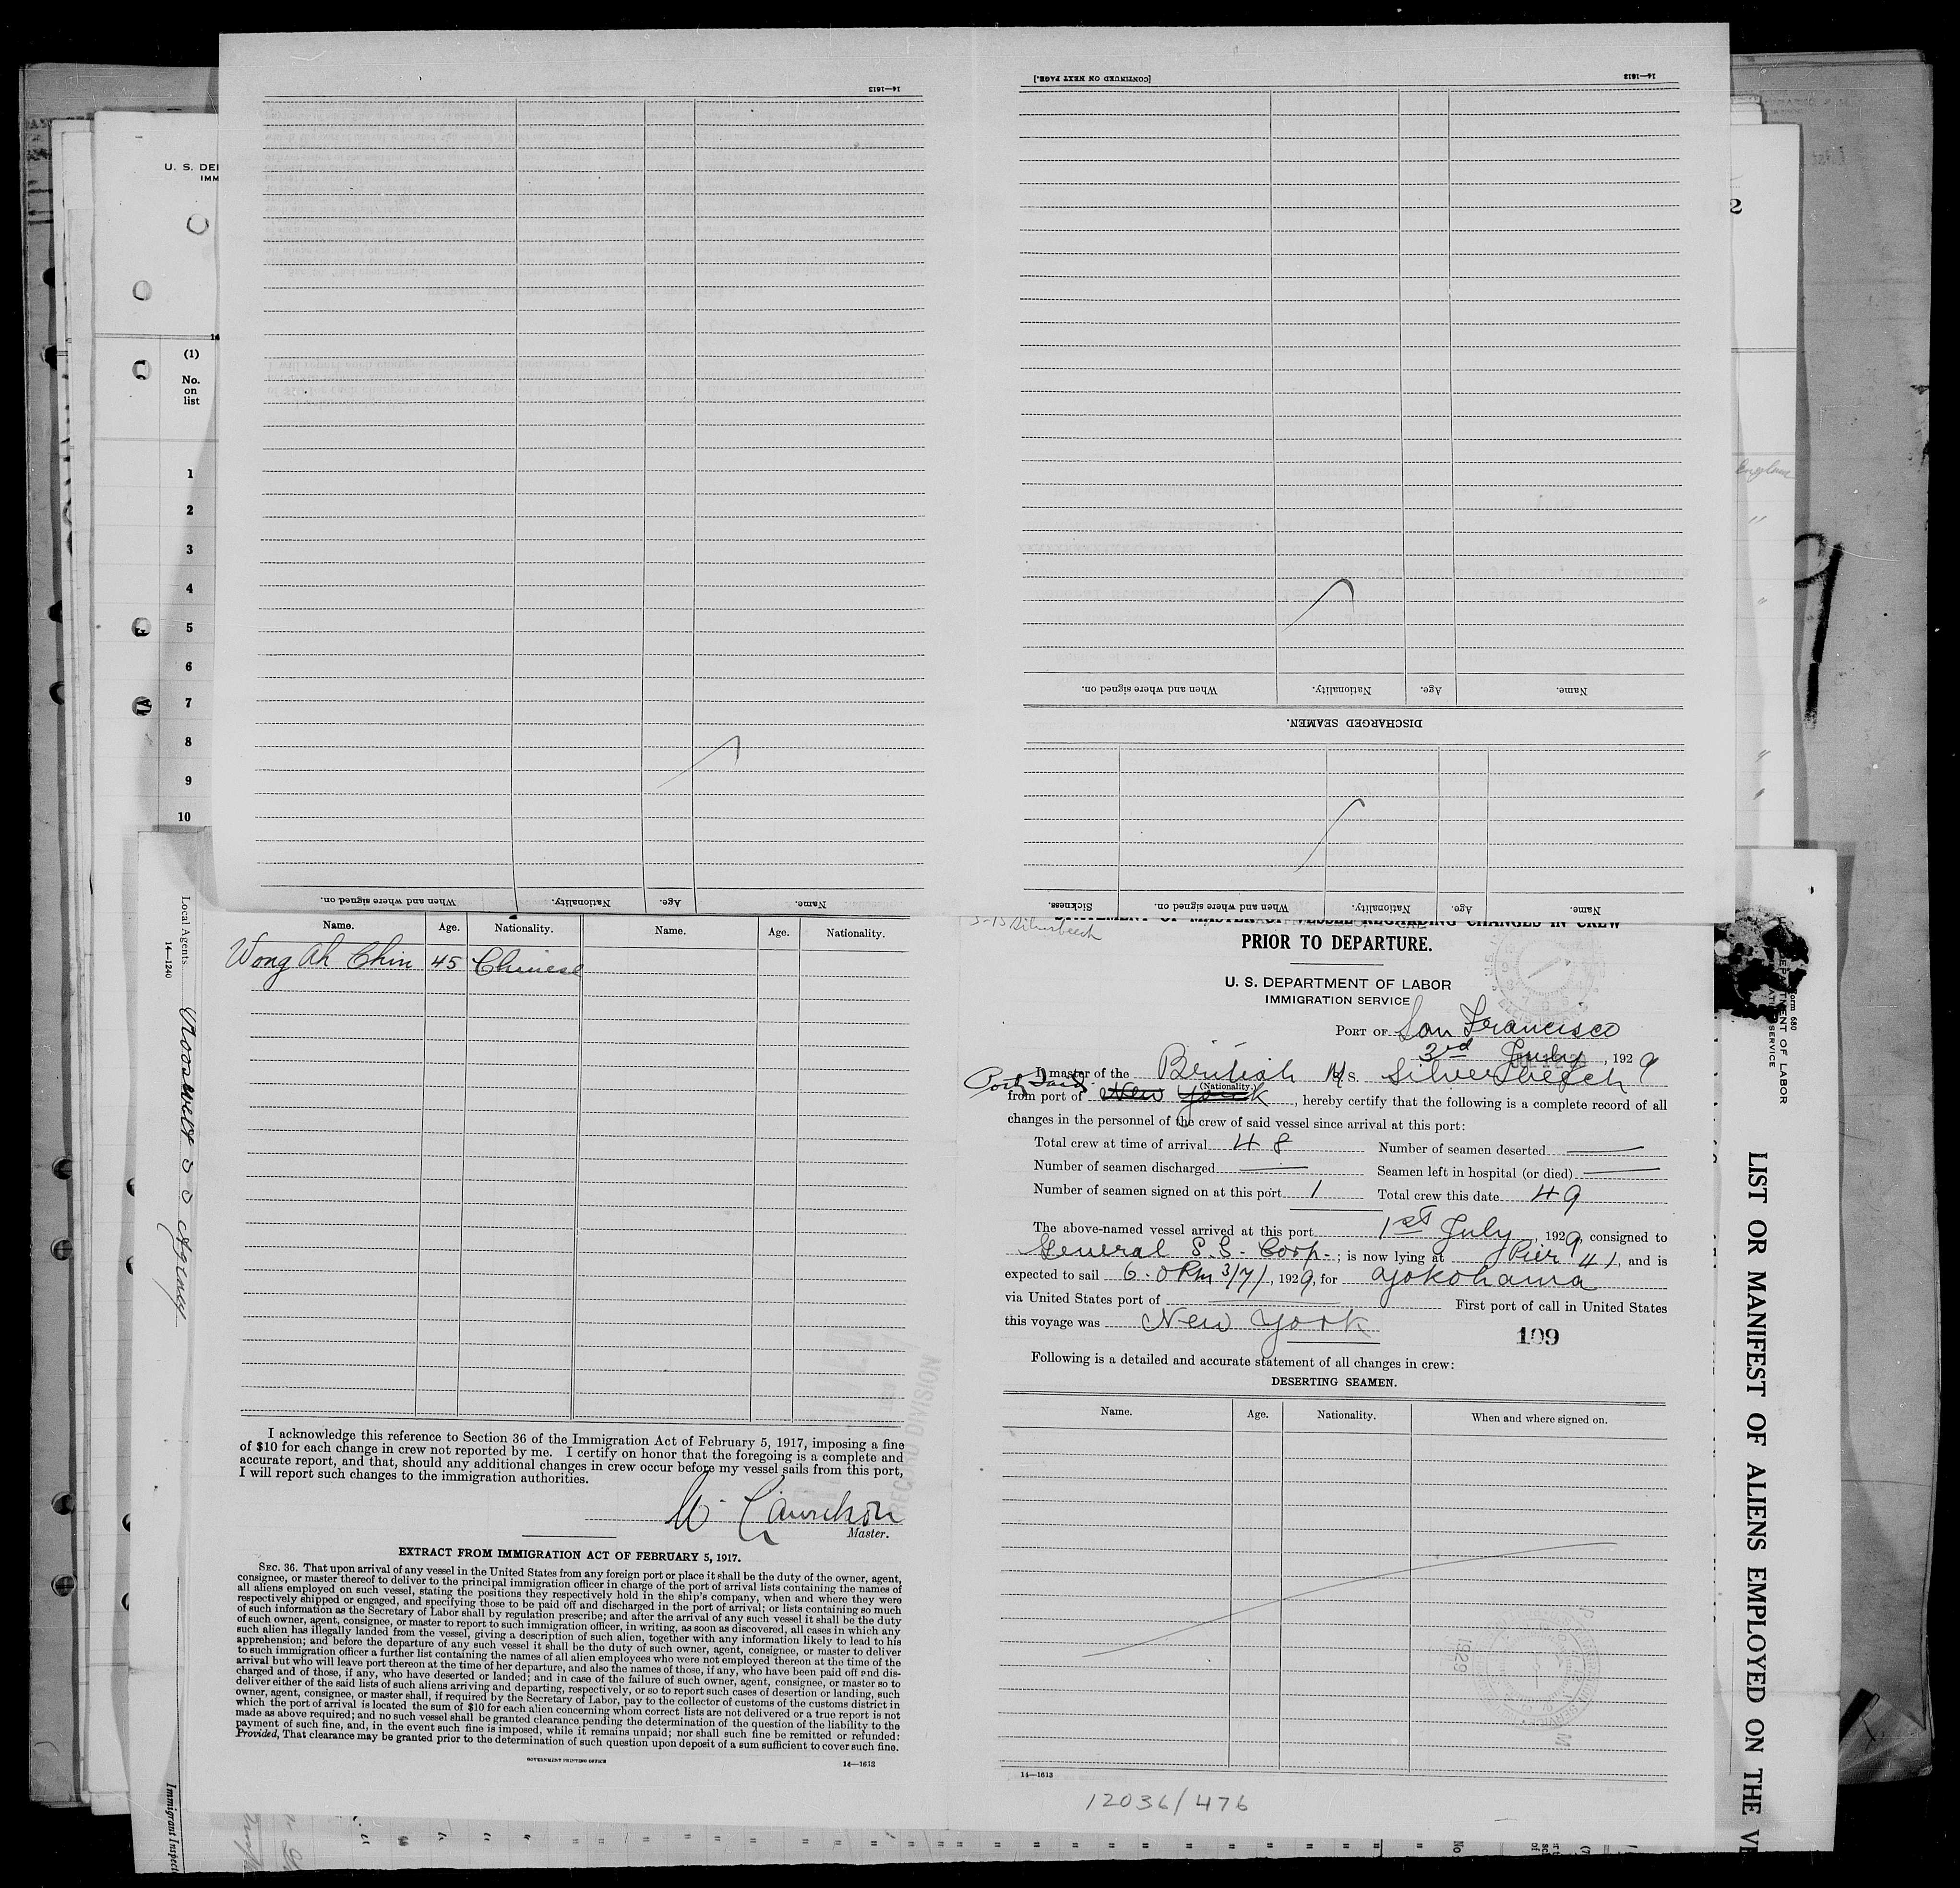 14—1613
[CONTINUED ON NEXT PAGE.]
14—1613
U. S. DE
IMM
(1)
No.
on
list
1
2
3
4
5
6
7
8
9
10
2
England
"
"
"
"
Name. Age. Nationality. When and where signed on.
DISCHARGED SEAMEN.
Name. Age. Nationality. When and where signed on.
Name. Age. Nationality. When and where signed on. Sickness.
Name. Age. Nationality. Name. Age. Nationality.
Wong Ah Chin 45 Chinese
I acknowledge this reference to Section 36 of the Immigration Act of February 5, 1917, imposing a fine
of $10 for each change in crew not reported by me. I certify on honor that the foregoing is a complete and
accurate report, and that, should any additional changes in crew occur before my vessel sails from this port,
I will report such changes to the immigration authorities.
Master.
EXTRACT FROM IMMIGRATION ACT OF FEBRUARY 5, 1917.
SEC. 36. That upon arrival of any vessel in the United States from any foreign port or place it shall be the duty of the owner, agent,
consignee, or master thereof to deliver to the principal immigration officer in charge of the port of arrival lists containing the names of
all aliens employed on such vessel, stating the positions they respectively hold in the ship's company, when and where they were
respectively shipped or engaged, and specifying those to be paid off and discharged in the port of arrival; or lists containing so much
of such information as the Secretary of Labor shall by regulation prescribe; and after the arrival of any such vessel it shall be the duty
of such owner, agent, consignee, or master to report to such immigration officer, in writing, as soon as discovered, all cases in which any
such alien has illegally landed from the vessel, giving a description of such alien, together with any information likely to lead to his
apprehension; and before the departure of any such vessel it shall be the duty of such owner, agent, consignee, or master to deliver
to such immigration officer a further list containing the names of all alien employees who were not employed thereon at the time of the
arrival but who will leave port thereon at the time of her departure, and also the names of those, if any, who have been paid off and dis-
charged and of those, if any, who have deserted or landed; and in case of the failure of such owner, agent, consignee, or master so to
deliver either of the said lists of such aliens arriving and departing, respectively, or so to report such cases of desertion or landing, such
owner, agent, consignee, or master shall, if required by the Secretary of Labor, pay to the collector of customs of the customs district in
which the port of arrival is located the sum of $10 for each alien concerning whom correct lists are not delivered or a true report is not
made as above required; and no such vessel shall be granted clearance pending the determination of the question of the liability to the
payment of such fine, and, in the event such fine is imposed, while it remains unpaid; nor shall such fine be remitted or refunded:
Provided, That clearance may be granted prior to the determination of such question upon deposit of a sum sufficient to cover such fine.
GOVERNMENT PRINTING OFFICE
14—1613
Silverbeech
STATEMENT OF MASTER OF VESSEL REGARDING CHANGES IN CREW
PRIOR TO DEPARTURE.
U. S. DEPARTMENT OF LABOR
IMMIGRATION SERVICE
PORT OF San Francisco
3rd July, 1929
I, master of the British M/S. Silverbeech
(Nationality.)
Port Said
from port of New York, hereby certify that the following is a complete record of all
changes in the personnel of the crew of said vessel since arrival at this port:
Total crew at time of arrival 48 Number of seamen deserted —
Number of seamen discharged — Seamen left in hospital (or died) —
Number of seamen signed on at this port 1 Total crew this date 49
The above-named vessel arrived at this port 1st July, 1929, consigned to
General S.S. Corp.; is now lying at Pier 41, and is
expected to sail 6.0 Pm 3/7/, 1929, for Yokohama
via United States port of — First port of call in United States
this voyage was New York
109
Following is a detailed and accurate statement of all changes in crew:
DESERTING SEAMEN.
Name. Age. Nationality. When and where signed on.
1929
14—1613
12036/476
Local Agents
14—1240
Agency
Immigrant Inspect
RECORD DIVISION
Form 680
DEPARTMENT OF LABOR
SERVICE
LIST OR MANIFEST OF ALIENS EMPLOYED ON THE VE